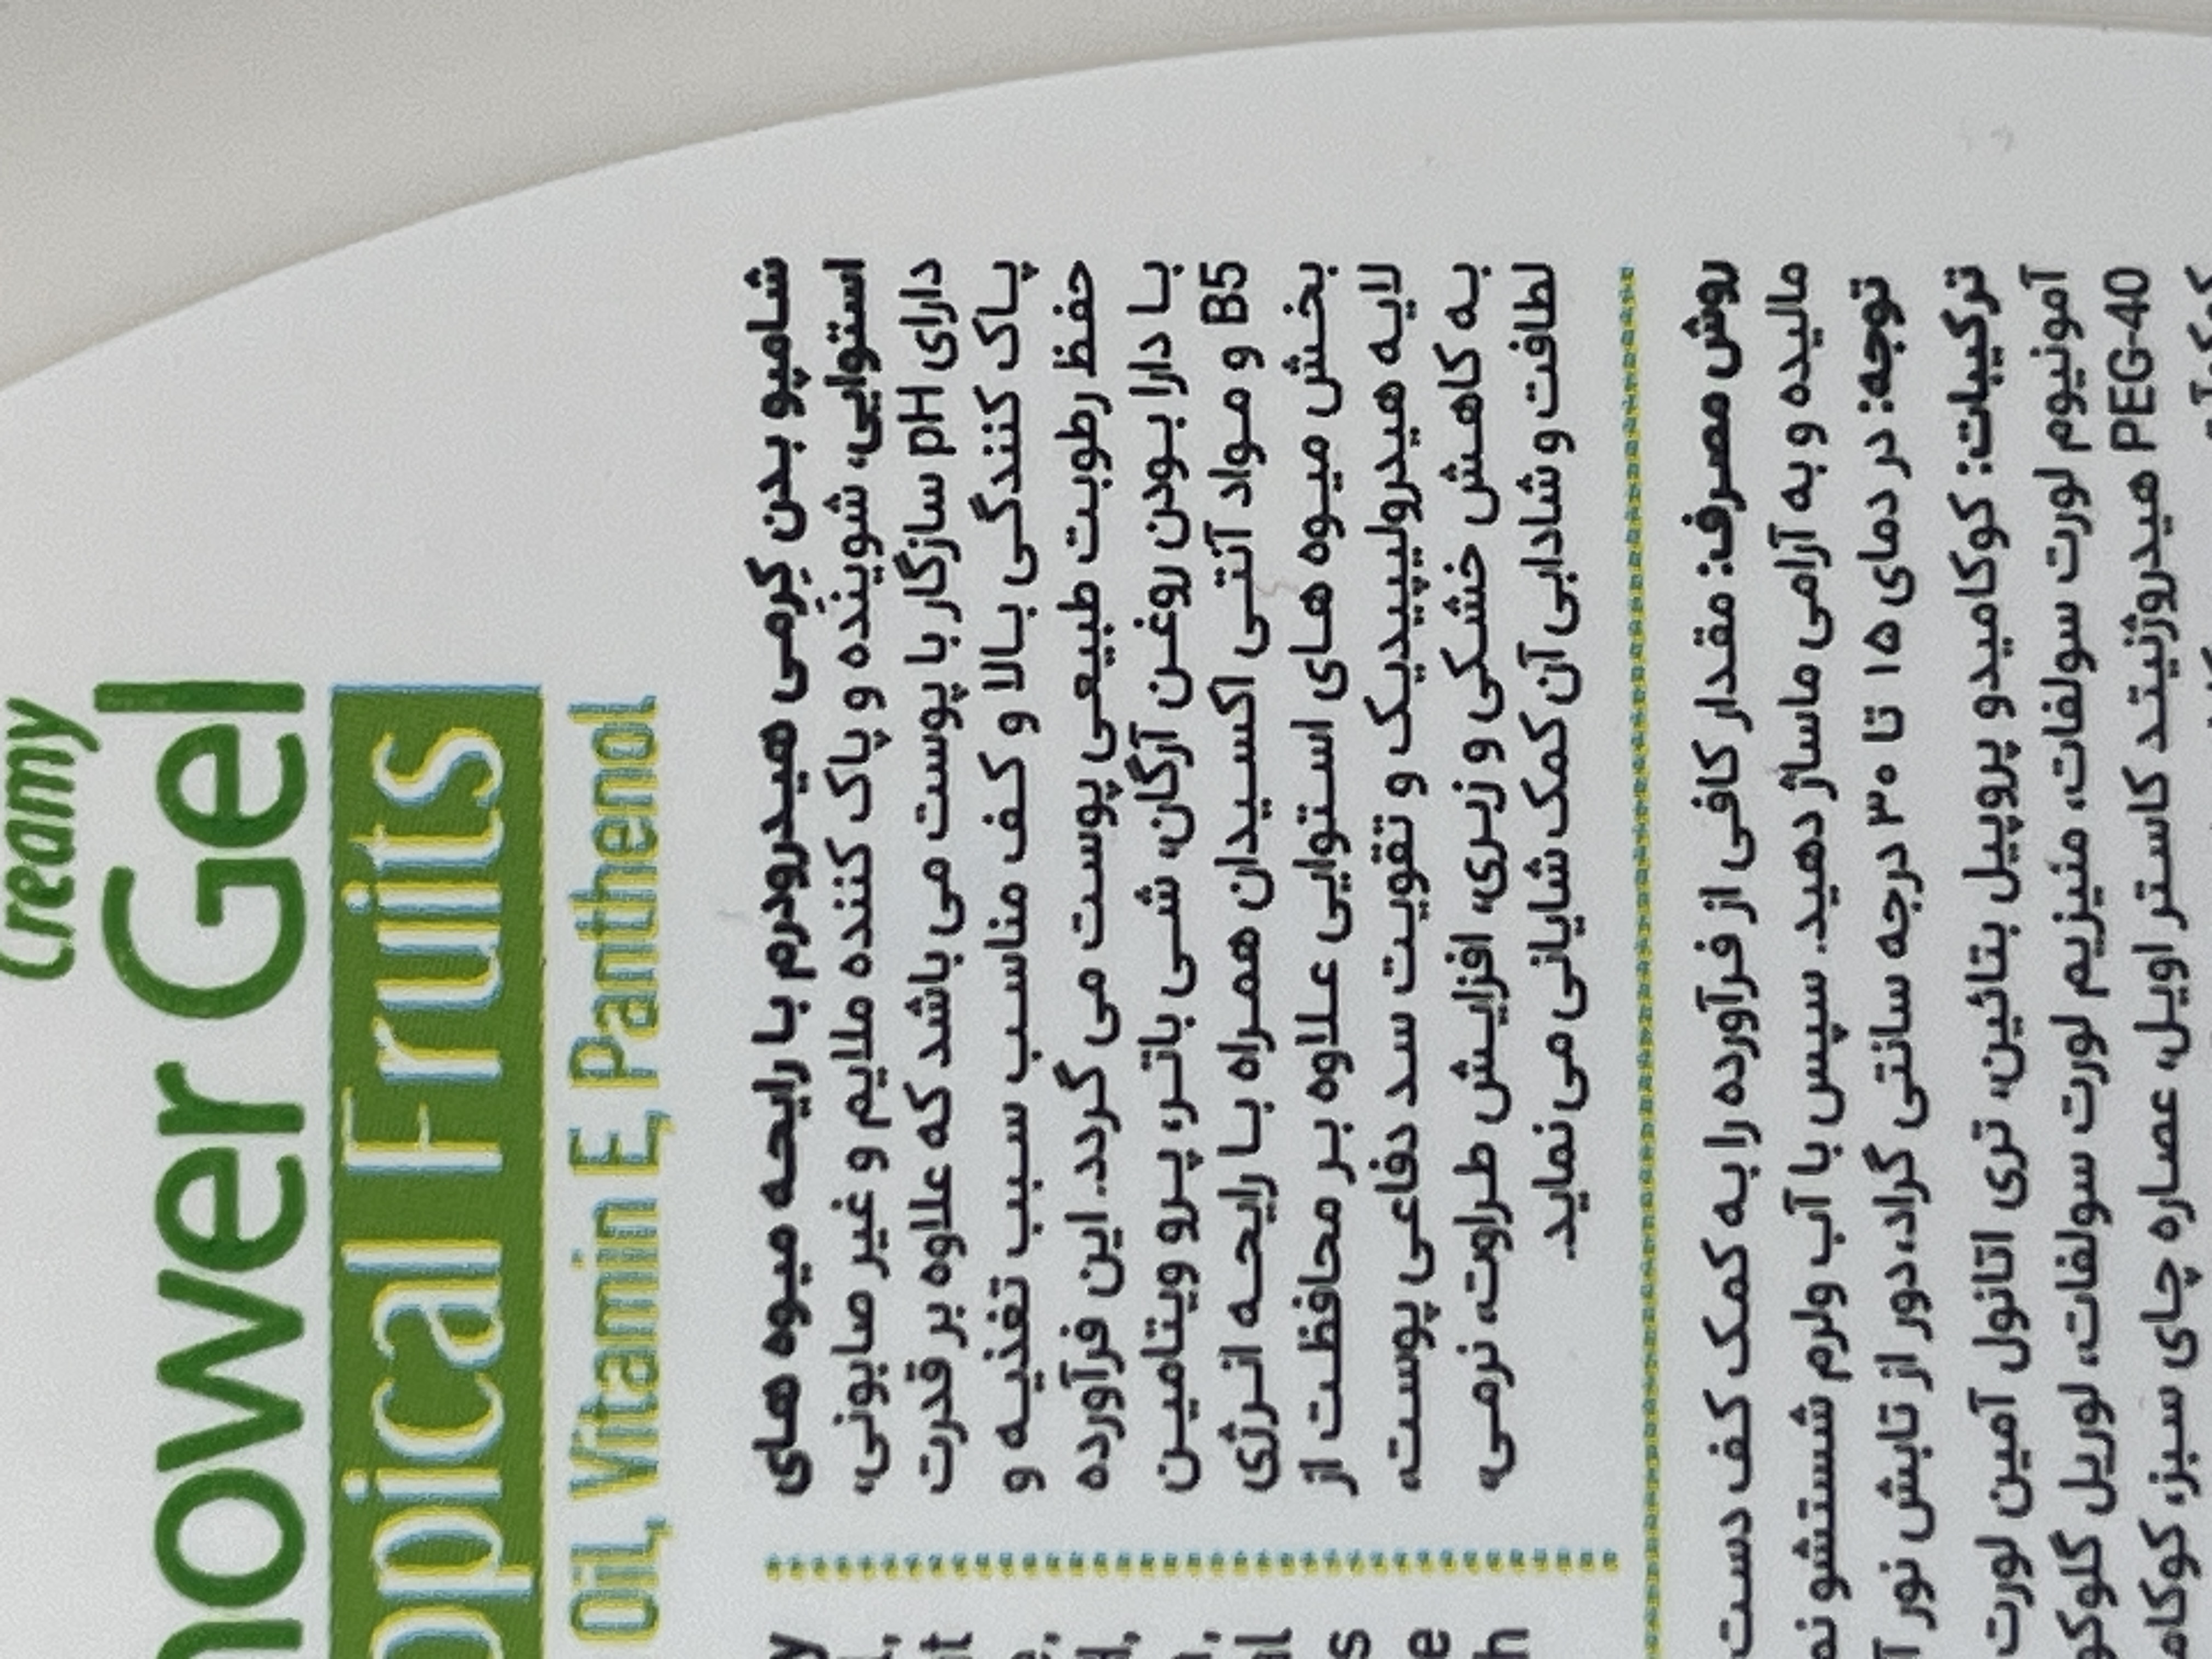 Creamy
hower Gel
opical Fruits
Oil, Vitamin E, Panthenol
شامپو بدن کِرِمی هیدرودرم با رایحه میوه های
استوایی، شوینده و پاک کننده ملایم و غیر صابونی،
دارای pH سازگار با پوست می باشد که علاوه بر قدرت
پاک کنندگی بالا و کف مناسب سبب تغذیه و
حفظ رطوبت طبیعی پوست می گردد. این فرآورده
با دارا بودن روغن آرگان، شی باتر، پرو ویتامین
B5 و مواد آنتی اکسیدان همراه با رایحه انرژی
بخش میوه های استوایی علاوه بر محافظت از
لایه هیدرولیپیدیک و تقویت سد دفاعی پوست،
به کاهش خشکی و زبری، افزایش طراوت، نرمی،
لطافت و شادابی آن کمک شایانی می نماید.
روش مصرف: مقدار کافی از فرآورده را به کمک کف دست
مالیده و به آرامی ماساژ دهید. سپس با آب ولرم شستشو نم
توجه: در دمای ۱۵ تا ۳۰ درجه سانتی گراد، دور از تابش نور آ
ترکیبات: کوکامیدو پروپیل بتائین، تری اتانول آمین لورت
آمونیوم لورت سولفات، منیزیم لورت سولفات، لوریل گلوکو
PEG-40 هیدروژنیتد کاستر اویل، عصاره چای سبز، کوکام